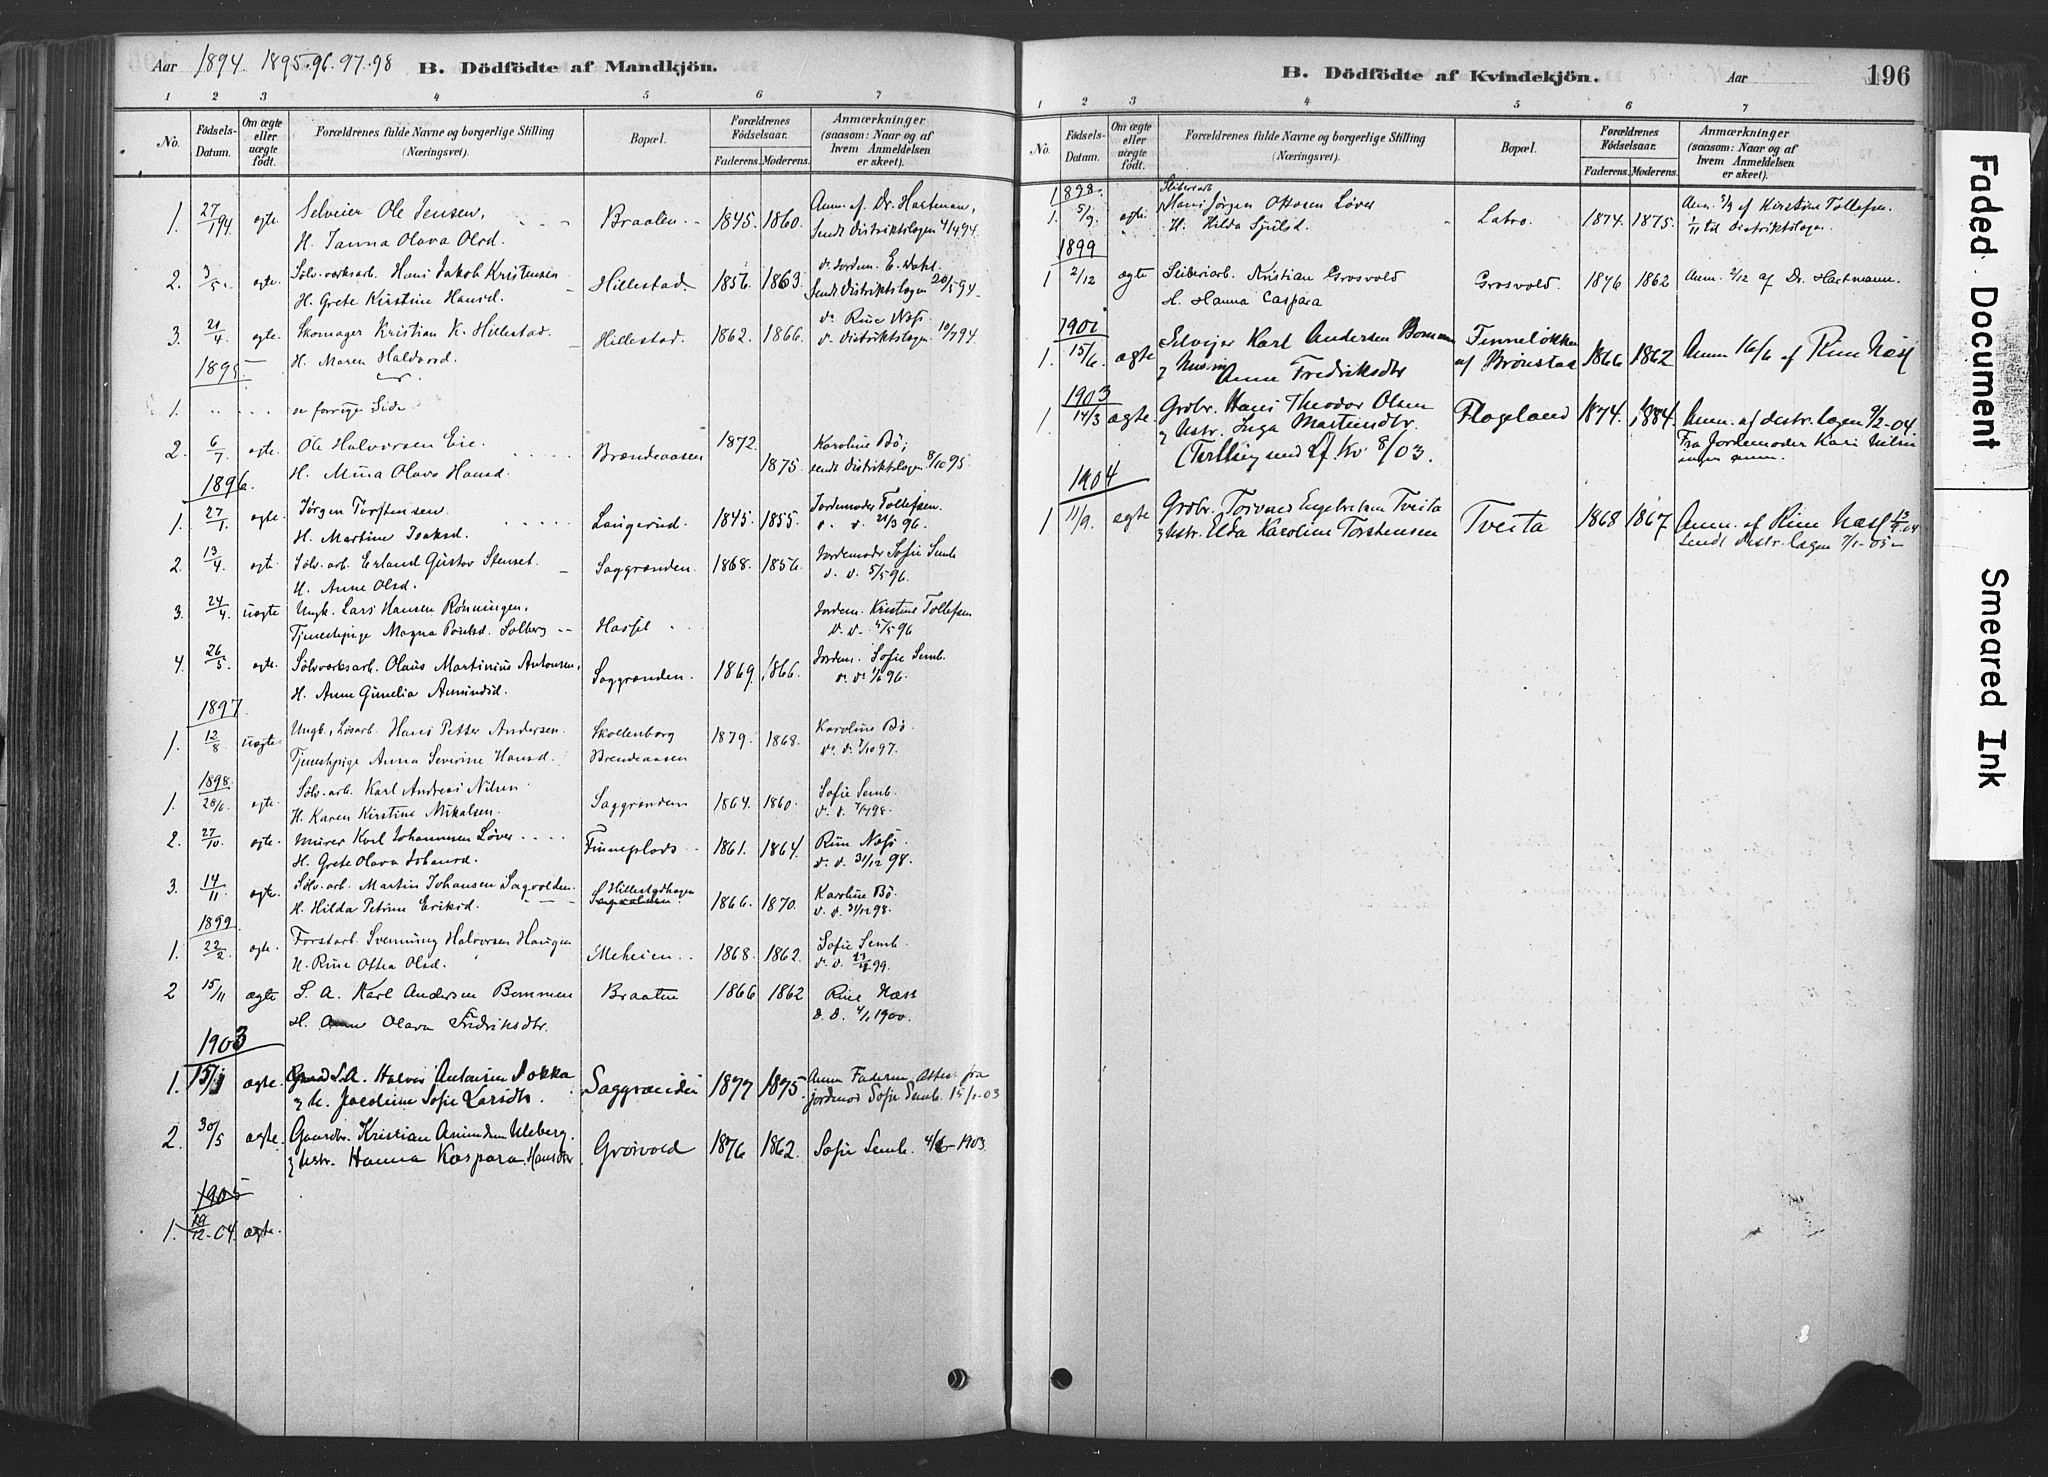 Aar 1894. 1895.96.97.98 B. Dödfödte af Mandkjön.
1 2 3 4 5 6 7
No. Fødsels-Datum. Om ægte eller uægte födt. Forældrenes fulde Navne og borgerlige Stilling (Næringsvei). Bopæl. Forældrenes Födselsaar. Faderens. Moderens. Anmærkninger (saasom: Naar og af hvem Anmeldelsen er skeet).
1. 27/1 94 egte Selveier Ole Jensen, Braaten 1845 1860. Anm. af Dr. Hartman,
H. Janna Olava Olsd. Sendt Distriktslægen 4/4 94.
2. 3/5 egte. Sölvverksarb. Hans Jakob Kristensen Hillestad. 1856. 1863. Jordem. E. Dahl
H. Grete Kirstine Hansd. Sendt Distriktslægen 20/5 94
3. 21/4 egte. Skomager Kristian K. Hillestad. Hillestad. 1862. 1866. Rine Næs.
H. Maren Halvord. Distriktslægen 10/7 94.
1895
1. se forrige Side
2. 6/7 egte. Ole Halvorsen Eie. Brændeaasen 1872. 1875. Karoline Bö;
H. Mina Olava Hansd. sendt Distriktslægen 8/10 95
1896.
1. 27/1. egte. Jörgen Torstensen Langerud. 1845. 1855. Jordemoder Tollefsen.
H. Martine Isaksd. 21/3 96.
2. 13/4. egte. Sölv.arb. Erland Gustav Stenset. Saggrenden. 1868. 1856. Jordemoder Sofie Semb
H. Anne Olsd. d. d. 5/5 96.
3. 24/4. uegte Ungk. Lars Hansen Rönningen, Hassel Jordem. Kristine Tollefsen
Tjenestepige Magna Poulsd. Solberg d. d. 4/5 96
4. 26/5. egte. Sölvverksarb. Olaus Martinius Antonsen, Saggrenden. 1869. 1866. Jordem. Sofie Semb.
H. Anne Gunelia Amundsd. d. d. 1/6 96.
1897.
1. 12/8. uegte Ungk., Lösarb. Hans Petter Andersen. Skollenborg 1879. 1868. Karoline Bö.
Tjenestepige Anna Severine Hansd. Brendeaasen d. d. 7/10 97.
1898.
1. 28/6. egte. Sölv.arb. Karl Andreas Nilsen. Saggrenden 1864. 1860. Sofie Semb.
H. Karen Kirstine Mikalsen. d. d. 7/7 98.
2. 27/10 egte. Murer Karl Johannesen Löver Finneplads 1861. 1864. Rine Næss
H. Grete Olava Johansd. d. d. 31/12 98.
3. 14/11. egte. Sölv.arb. Martin Johansen Sagvolden. Hillestadhagen 1866. 1870. Karoline Bö.
H. Hilda Petrine Eriksd. d. d. 31/12 98.
1899.
1. 22/2 egte. Forstarb. Svenning Halvorsen Haugen Meheien 1868. 1862. Sofie Semb.
H. Rine Othea Olsd. d. d. 99.
2 15/11 ægte S. A. Karl Andersen Bommen Braaten 1866 1862 Rine Næss
H. Anne Olava Fredriksdtr. D. D. 4/1 1900.
1903
1. 15/1 ægte. S.A. Halvor Antonsen Jokka Saggrenden 1877 1875. Anm Faderen. Attest fra
& H. Jacobine Sofie Larsdtr. jordmod Sofie Semb. 15/1-03
2. 30/5 ægte. Gaardbr. Kristian Amundsen Uleberg. Grosvold 1876 1862. Sofie Semb. 4/6-1903
& Hstr. Hanna Kaspara Hansdtr
1905
1. 19/12-04. ægte.
B. Dödfödte af Kvindekjön. Aar 196
1 2 3 4 5 6 7
No. Födsels-Datum. Om ægte eller uægte födt. Forældrenes fulde Navne og borgerlige Stilling (Næringsvei). Bopæl. Forældrenes Födselsaar. Faderens. Moderens. Anmærkninger (saasom: Naar og af hvem Anmeldelsen er skeet).
1898. Sliberiarb
1. 5/9. egte. Hans Jörgen Ottosen Löver Labro. 1874. 1875. Anm. 5/9 af Kirstine Tollefsen.
H. Hilda Sjulsd. 1/11 til Distriktslægen.
1899
1 2/12 ægte Sliberiarb. Kristian Grosvold Grosvold. 1876 1862 Anm. 2/12 af Dr. Hartmann.
H. Hanna Caspara
1901
1. 15/6. ægte Selvejer Karl Andersen Bommen Finneløkken 1866 1862 Anm 16/6 af Rine Næss
& Anne Fredriksdtr af Brönstad
1903
1. 14/3 ægte Grdbr. Hans Theodor Olsen Flageland 1874. 1884. Anm. af distr. lægen 9/2-04
& Hstr. Inga Martinsdtr. Fra Jordemoder Kari Nilsen
(Tvilling med Lf. Kv 8/03. ingen anm.
1904
1 11/9. ægte Grdbr. Torvald Engebretsen Tveita Tveita 1868 1867 Anm. af Rine Næss 13/9 04
& Hstr. Elda Karoline Torstensen Sendt distr. lægen 7/1-05
Faded Document
Smeared Ink